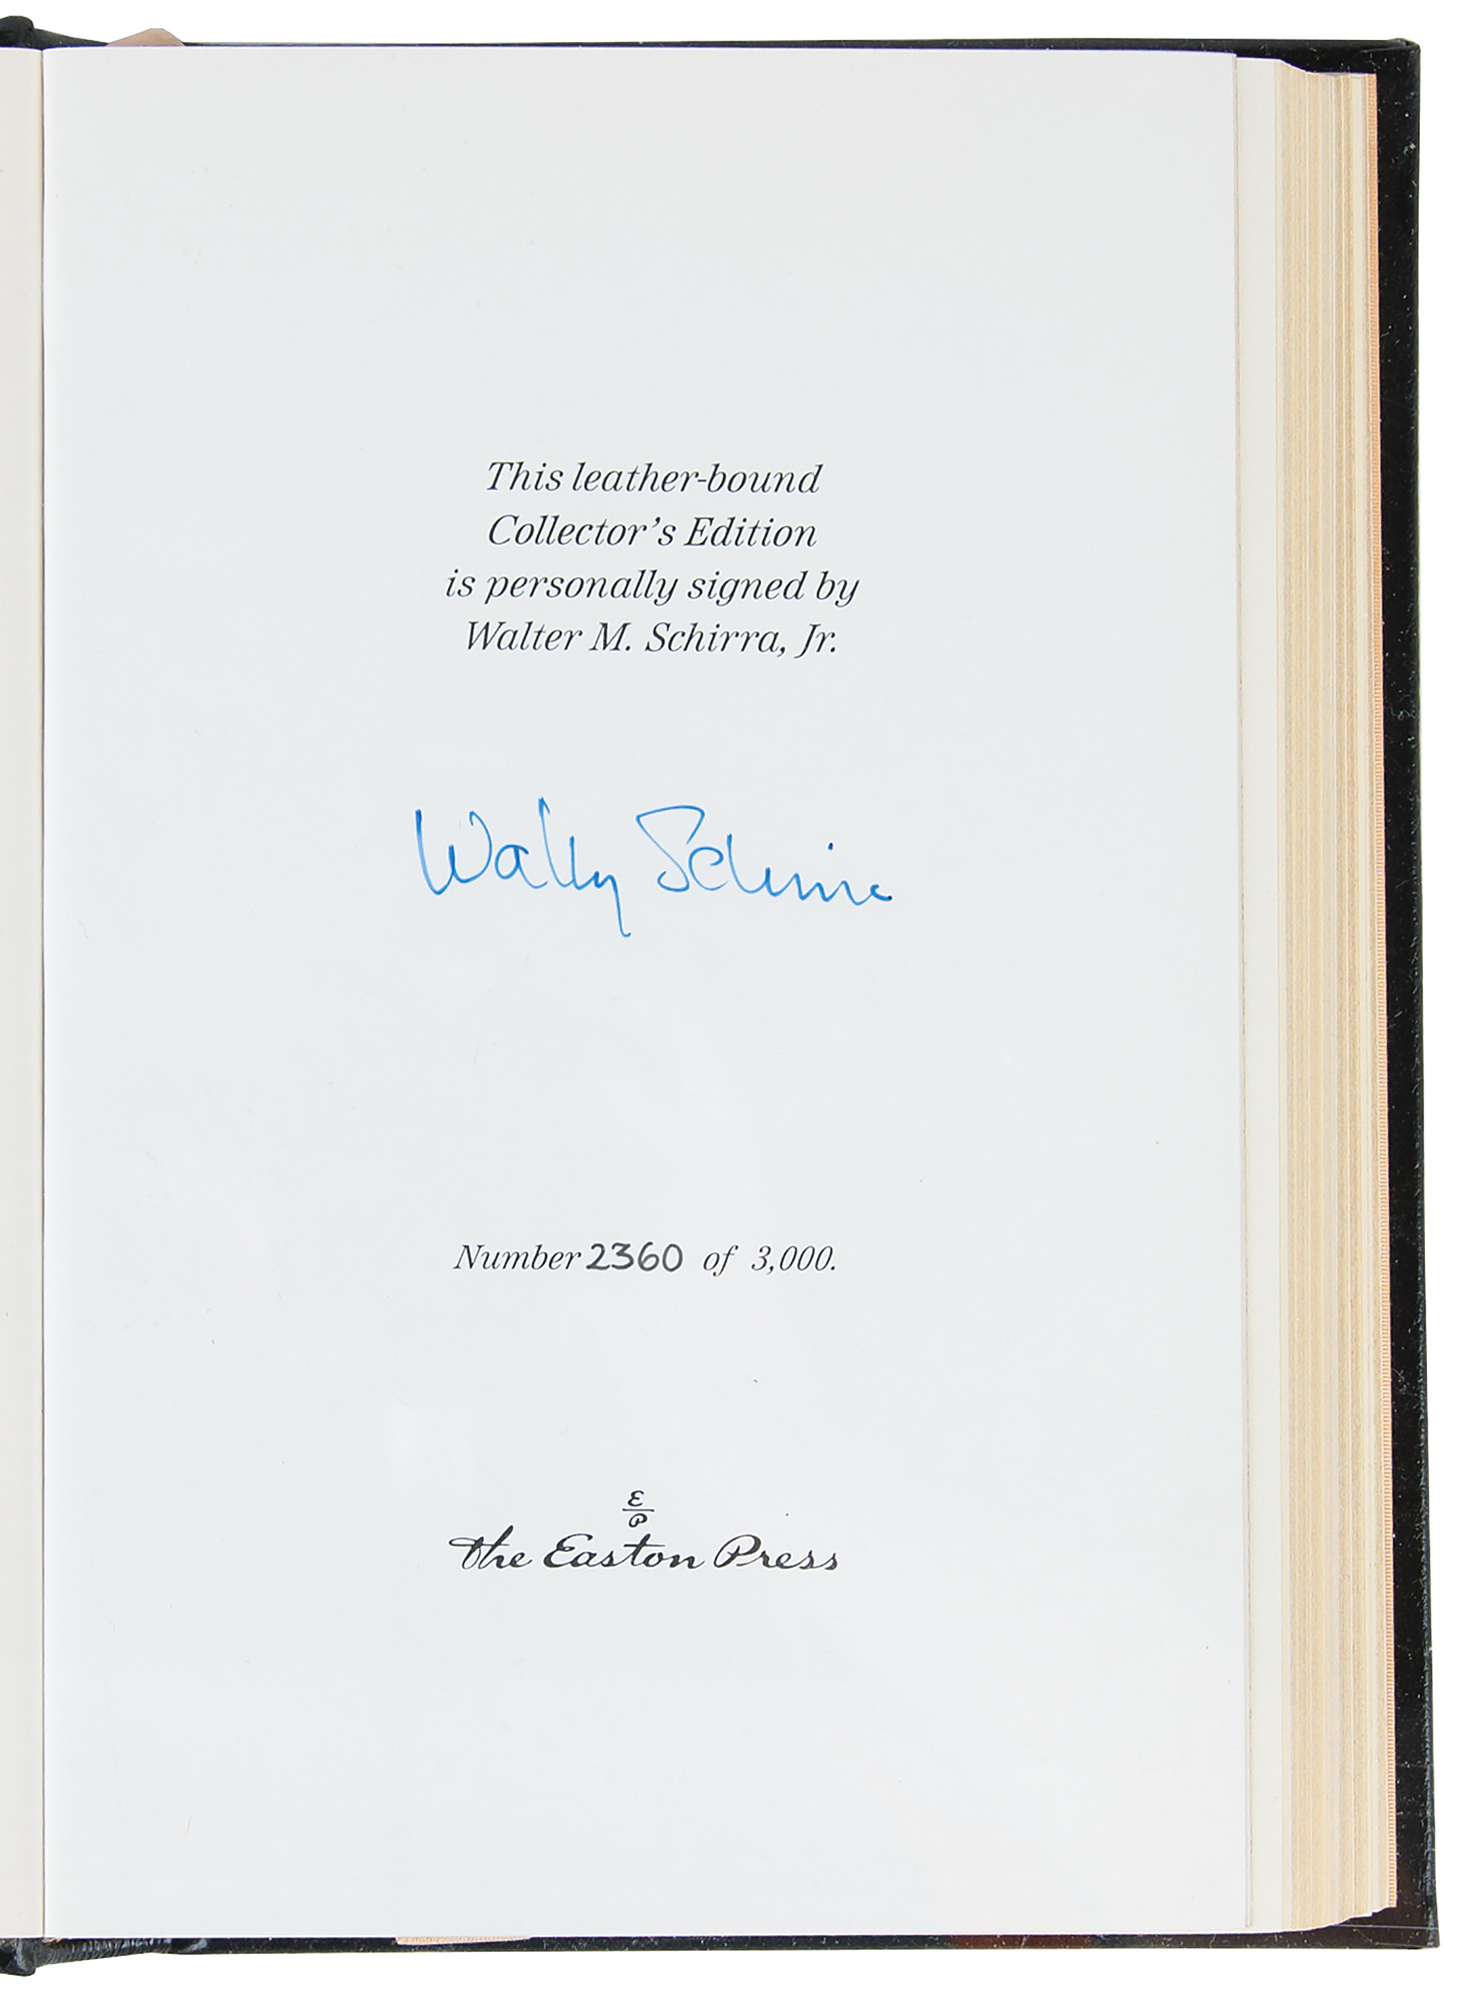 This leather-bound
Collector's Edition
is personally signed by
Walter M. Schirra, Jr.
Wally Schirra
Number 2360 of 3,000.
E
P
The Easton Press